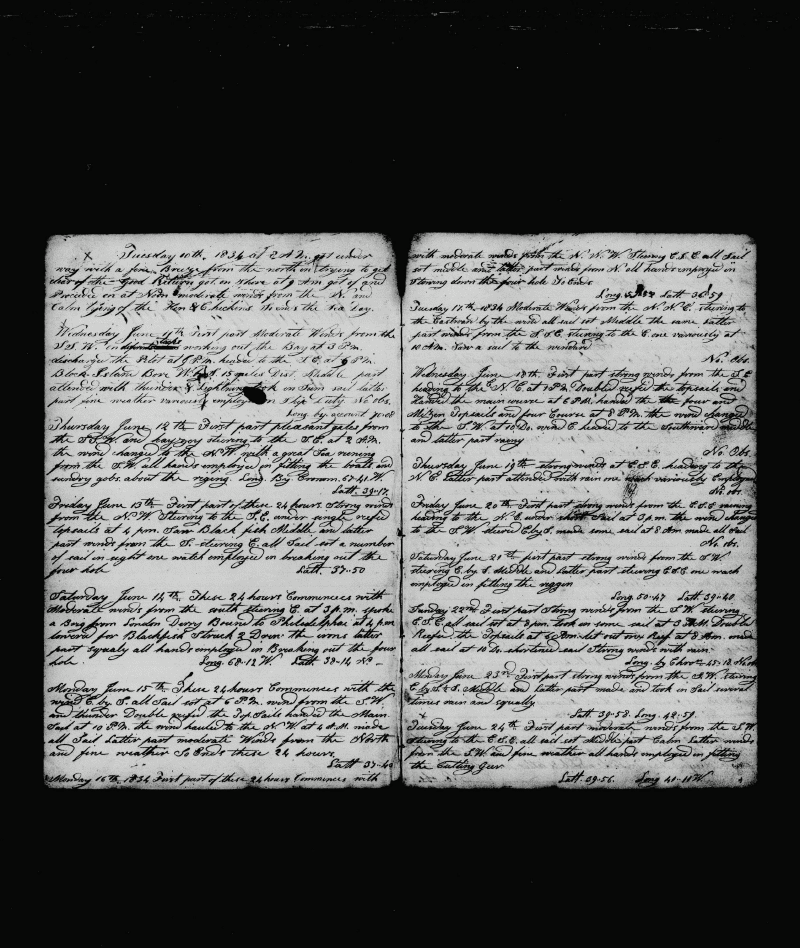 Tuesday 10th, 1834 at 2 A.M. got under
way with a fine Breeze from the north en trying to get
clear of the Good Return got on Shore at 9 Am got of and
Procedee on at Noon moderate winds from the N. and
Calm lying of the Hen & Chickens So ends the Sea Day.
Wednesday June 11th First part Moderate Winds from the
S.S.W. working out the Bay at 3 P.m.
discharge the Pilot at P.M. headed to the S.E. at 6 P.m.
Block Island Bore 15 miles Dist. Middle part
attended with thunder & Lightning took in Som sail latter
part fine weather variously employed on Ship Duty No obs.
Long by account 70-08
Thursday June 12th First part pleasant gales from
the S.S.W. and hazy steering to the S.E. at 2 P.M.
the wind changed to the N.W. with a great Sea runing
from the S.W. all hands employed in fitting the boats and
sundry gobs about the riging. Long. By Cronom. 67-41 W.
Latt. 39-17.
Friday June 13th First part of these 24 hours Strong winds
from the N.W. Steering to the S.E. under single reefed
topsails at 4 pm. Saw Black fish Meddle and latter
part winds from the S. steering E. all Sail set a number
of sail in sight one watch employed in breaking out the
four hole Latt. 37-50
Saturday June 14th These 24 hours Commences with
Moderate winds from the south steering E. at 3 pm. spoke
a Brig from London Derry Bound to Philadelphia at 4 pm
lowered for Blackfish Struck 2 Down the irons latter
part squaly all hands employed in Breaking out the four
hole. Long. 68-12 W Latt 38-14 N
Monday June 15th These 24 hours Commences with the
wind E. by S. all Sail set at 6 P.M. wind from the S.W.
and thunder Double reefed the Top Sails handed the Main
Sail at 10 P.M. the wind hauled to the N.W at 4 A.M. made
all Sail Latter part moderate Winds from the North
and fine weather So Ends these 24 hours.
Latt 37-40
Monday 16th 1834 First part of these 24 hours Commences with
with moderate winds from the N.N.W. Steering E.S.E. all Sail
set middle and latter part winds from N. all hands employed in
Stowing down the four hole So Ends
Long Latt 36-59
Tuesday 17th 1834 Moderate Winds from the N.N.E. steering to
the Eastward by the wind all sail set Middle the same Latter
part winds from the S.S.E. steering to the E. one variously at
10 A.m. Saw a sail to the windard
No. Obs.
Wednesday June 18th First part strong winds from the S.E
heading to the E.N.E. at 7 P.M. Doubled reefed the topsails and
handed the main course at 6 P.M. handed the four and
Mizzen Topsails and four Course at 8 P.M. the wind changed
to the S.W. at 10 Do. wind E. headed to the Southward middle
and latter part rainy
No Obs.
Thursday June 19th strong winds at E.S.E. heading to the
N.E. Latter part attended with rain one watch variously Employed
No obs.
Friday June 20th First part strong winds from the E.S.E running
heading to the N.E. under short Sail at 3 p.m. the wind change
to the S.W. steering E. by S. made some sail at 8 Am. made all Sail
No. obs.
Saturday June 21st first part strong winds from the S.W.
steering E. by S. Meddle and Latter part steering E.S.E one wach
employed in fitting the riggin
Long 50-47 Latt 39-40
Sunday 22nd First part Strong winds from the S.W. steering
E.S.E. all sail set at 8 pm. took in some sail at 3 A.M. Double
Reefed the Topsails at 6 A.m. let out one Reef at 8 A.m. made
all sail at 10 Do. shortened sail Strong winds with rain
Long. by Chro. 45-13 No obs
Monday June 23rd First part strong winds from the S.W. steering
E. by S. Meddle and latter part made and took in Sail several
times rain and squally
Latt. 39-58. Long. 42-59.
Tuesday June 24th First part moderate winds from the S.W.
steering to the E.S.E. all sail set Middle part Calm Latter winds
from the S.W. and fine weather all hands employed in fitting
the Cutting Geer
Latt. 39-56. Long 40-11 W